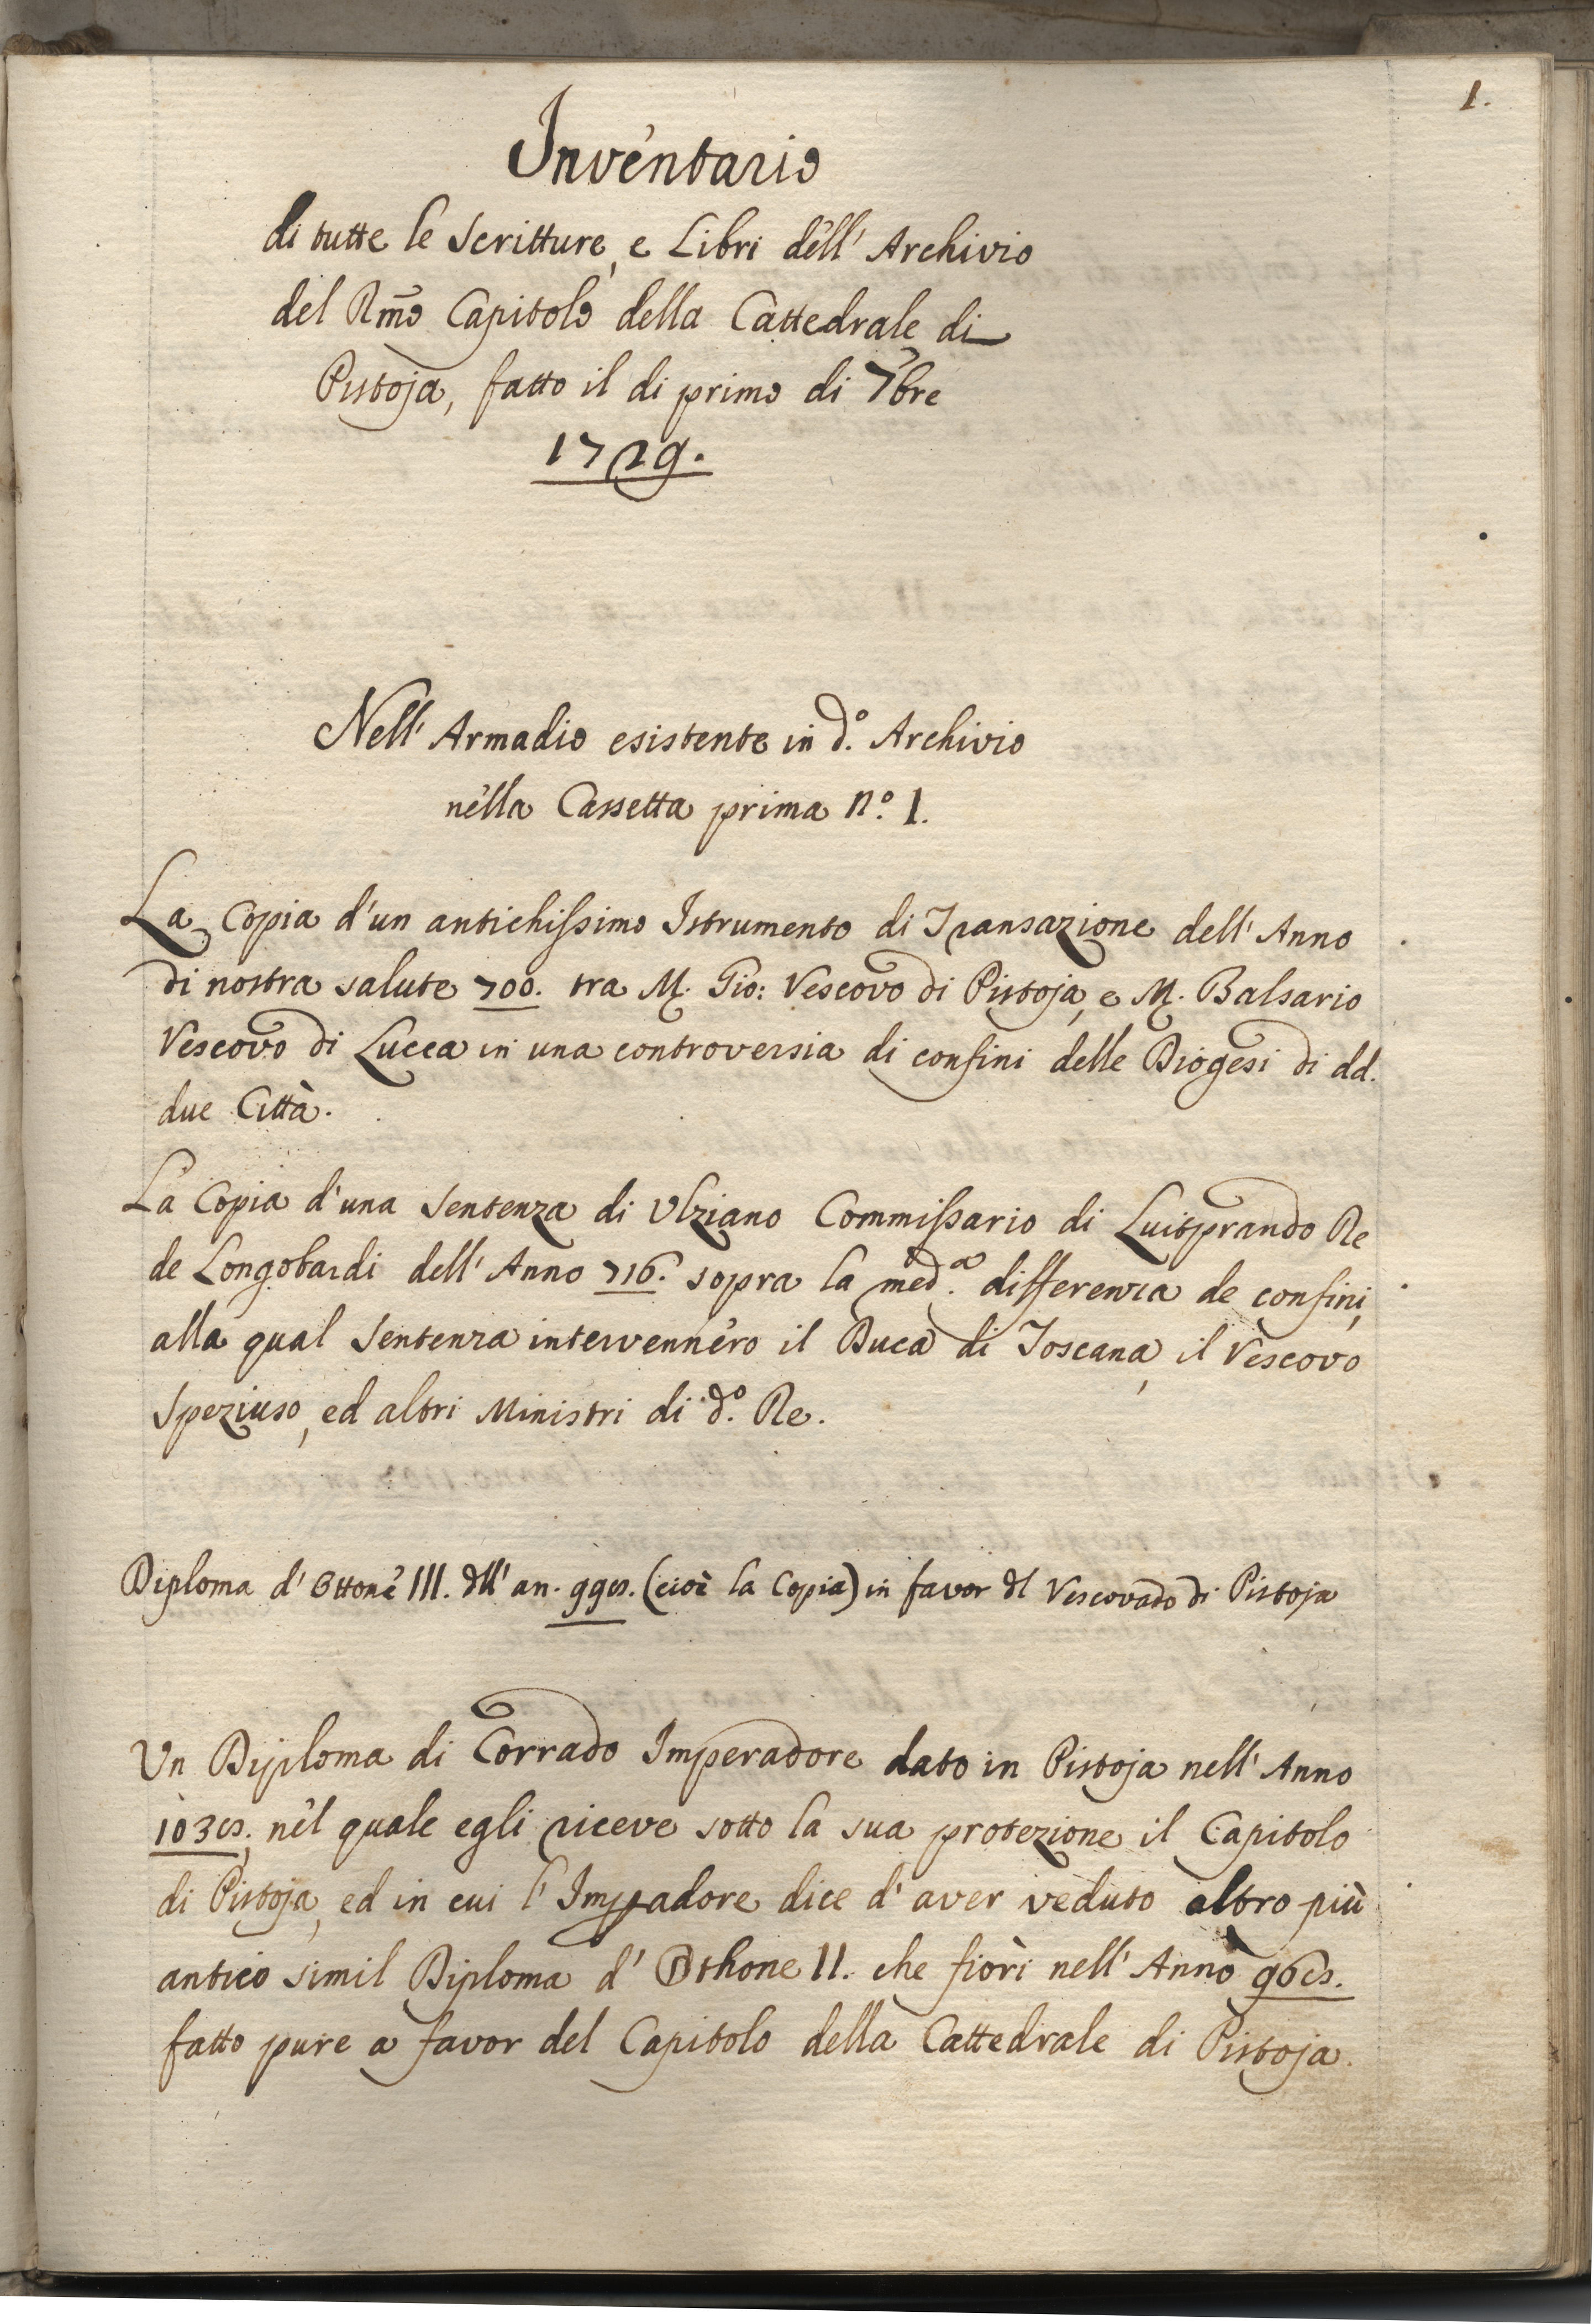 1.
Inventario
di tutte le Scritture, e Libri dell' Archivio
del Rm̃o Capitolo della Cattedrale di
Pistoja, fatto il di primo di 7bre
1729.
Nell' Armadio esistente in d.º Archivio
nella Cassetta prima N.º 1.
La Copia d'un antichissimo Istrumento di Transazione dell' Anno
di nostra salute 700. tra M. Gio: Vescovo di Pistoja, e M. Balsario
Vescovo di Lucca in una controversia di confini delle Diogesi di dd.
due Città.
La Copia d'una Sentenza di Ulziano Commissario di Luitprando Re
de Longobardi dell' Anno 716. sopra la med.ª differenza de confini,
alla qual Sentenza intervennero il Duca di Toscana, il Vescovo
Speziuso, ed altri Ministri di d.º Re.
Diploma d' Ottone III. dll' an. 998. (cioè la Copia) in favor dl Vescovado di Pistoja
Un Diploma di Corrado Imperadore dato in Pistoja nell' Anno
1038. nel quale egli riceve sotto la sua protezione il Capitolo
di Pistoja, ed in cui l' Impadore dice d' aver veduto altro più
antico simil Diploma d' Othone II. che fiorì nell' Anno 968.
fatto pure a favor del Capitolo della Cattedrale di Pistoja.